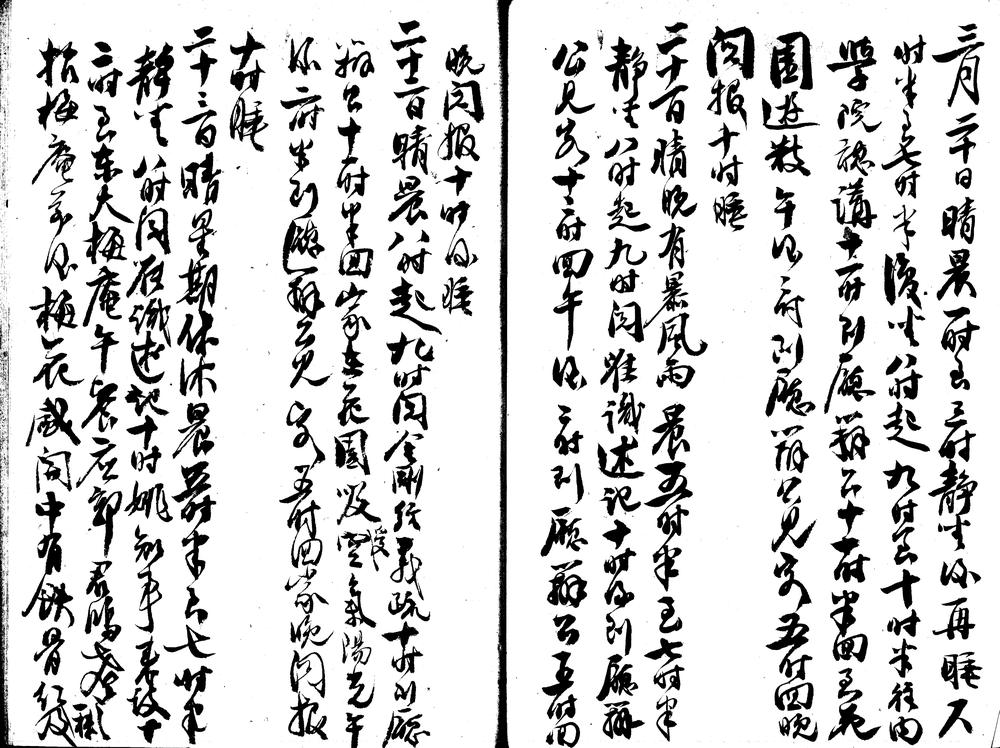 三月二十日晴晨一时至三时静坐后再睡又
时半至七时半复坐八时起九时至十时半往内
学院听讲十一时到厅办公十一时半回至花
园游散午后二时到厅办公见客五时回晚
阅报十时睡
二十一日晴晚有暴风雨晨五时半至七时半
静坐八时起九时阅唯识述记十时后到厅办
公见客十二时回午后二时到厅办公五时回
晚阅报十时后睡
二十二日晴晨八时起九时阅金刚经义疏十时到厅
办公十一时半回家在花园吸受空气阳光午
后二时半到厅办公见客五时回家晚阅报
十时睡
二十三日晴星期休沐晨四时半至七时半
静坐八时阅唯识述记十时姚知事来谈十
二时至东大梅庵午餐应郭君鸣老之
招梅庵前后梅花盛开中有铁骨红及